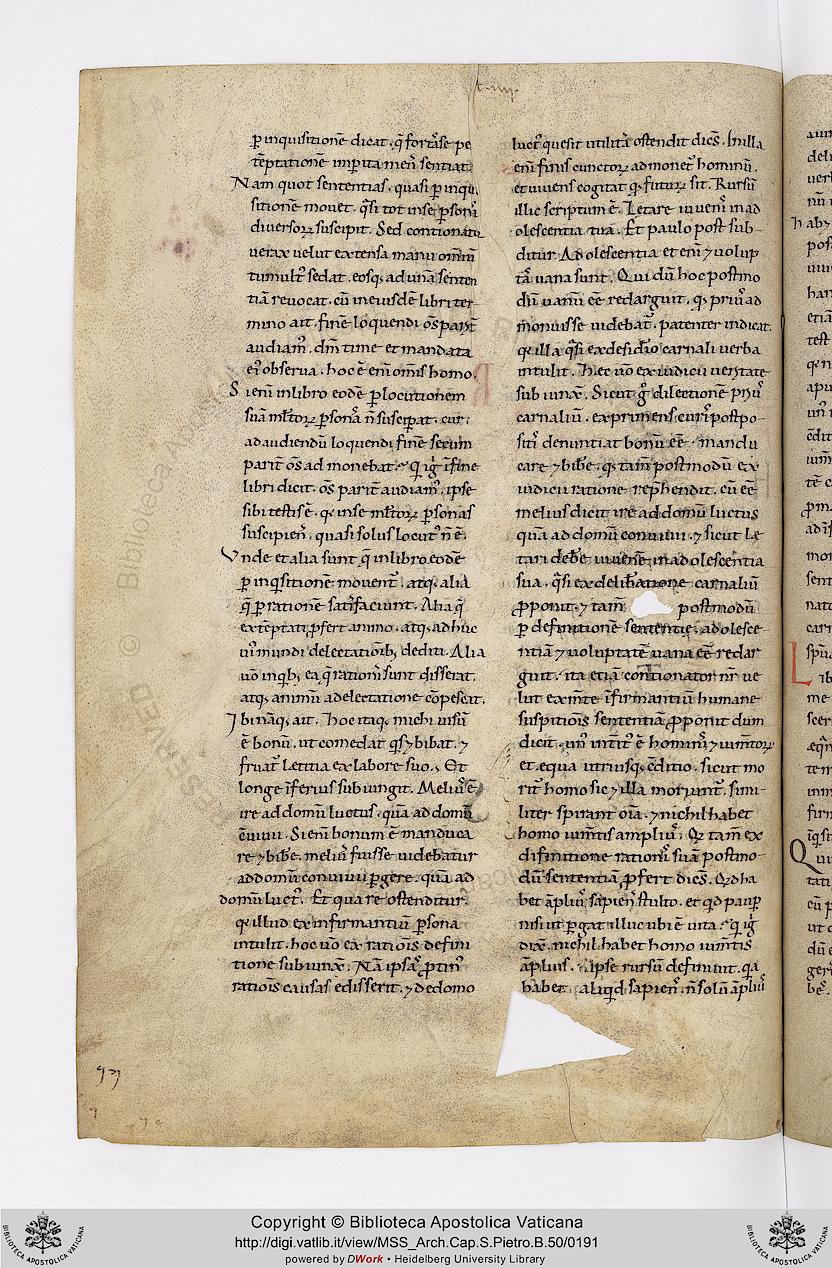 t. iiii.
p inquisitionē dicat. q̄ fortasse pe
tēptationē inpita men̄ sentiat.
Nam quot sententias. quasi p inqui
sitionē movet. q̄si tot in se psonas
diversoꝝ suscipit. Sed contionator
verax velut extensa manu omniū
tumult᷒ sedat. eosq; ad unā senten
tiā revocat. cū in eiusdē libri ter
mino ait. finē loquendi om̄s parit̄
audiam᷒. dm̄ time et mandata
ei᷒ observa. hoc ē eni omīs homo
Si eni in libro eodē p locutionem
suā mltoꝝ psonā n̄ susceperat. cur
ad audiendū loquendi finē secum
parit̄ om̄s admonebat. Qui igr̄ ī fine
libri dicit. om̄s parit̄ audiam᷒. ipse
sibi testis ē. q in se mltoꝝ psonas
suscipien̄. quasi solus locut᷒ n̄ ē.
Vnde et alia sunt q̄ in libro eodē
p inq̄sitionē movent᷒. atq; alia
q̄ p rationē satisfaciunt. Alia q̄
ex tēptati pfert animo. atq; adhuc
hui᷒ mundi delectationib; dediti. Alia
vō in quib; ea q̄ rationi sunt disserat.
atq; animū a delectatione cōpescat.
Ibi nāq; ait. Hoc itaq; michi visū
ē bonū. ut comedat quis ⁊ bibat. ⁊
fruat᷒ letitia ex labore suo. Et
longe īferius subiungit. Meliu᷒ ē
ire ad domū luctus. quā ad domū
cōvivii. Si eni bonum ē manduca
re ⁊ bibe. meli᷒ fuisse videbatur
ad domū convivii pgere. quā ad
domū luct᷒. Et qua re ostenditur.
q illud ex infirmantiū psona
intulit. hoc vō ex ratiois defini
tione subiunx̄. Nā ipsas protin᷒
ratiois causas edisserit. ⁊ de domo
luct᷒ que sit utilitas ostendit dicēs. In illa
eni finis cunctoꝝ admonet᷒ hominū.
et vivens cogitat q futurū sit. Rursū
illic scriptum ē. Letare iuvenis in ad
olescentia tua. Et paulo post sub-
ditur. Adolescentia et eni ⁊ volup
tas vana sunt. Qui dū hoc postmo
dū vanū eē redarguit. q prius ad
monuisse videbat᷒. patenter indicat.
q illa q̄si ex desidio carnali verba
intulit. hec vō ex iudicii veritate
subiunx̄. Sicut g̊ dilectione prius
carnaliū. exprimens curis postpo-
sitis denuntiat bonū eē. mandu
care ⁊ bibe. q tam̄ postmodū ex
iudicii ratione rephendit. cū eē
melius dicit ire ad domū luctus
quā ad domū convivii. ⁊ sicut le
tari debe iuvenē in adolescentia
sua. q̄si ex deliberatione carnaliū
pponit. ⁊ tam̄ postmodū
p definitionē sententie. adolesce-
ntiā ⁊ voluptatē vana eē redar
guit. ita etiā contionator nr̄ ve
lut ex mente ifirmantiū humane
suspitiois sententiā pponit dum
dicit. un᷒ intit᷒ ē hominis ⁊ iumtoꝝ
et equa utriusq; cōditio. sicut mo
rit᷒ homo sic ⁊ illa moriunt᷒. simi-
liter spirant oīa. ⁊ nichil habet
homo iumtis amplius. Qui tam̄ ex
difinitione rationis suā postmo-
dū sententiā pfert dicēs. Quid ha
bet āplius sapiens stulto. et quid paup
nisi ut pgat illuc ubi ē vita. Qui igr̄
dix̄. nichil habet homo iumtis
āplius. ipse rursū definivit. quia
habet aliquid sapiens. n̄ solū āplius
Copyright © Biblioteca Apostolica Vaticana
http://digi.vatlib.it/view/MSS_Arch.Cap.S.Pietro.B.50/0191
powered by DWork • Heidelberg University Library